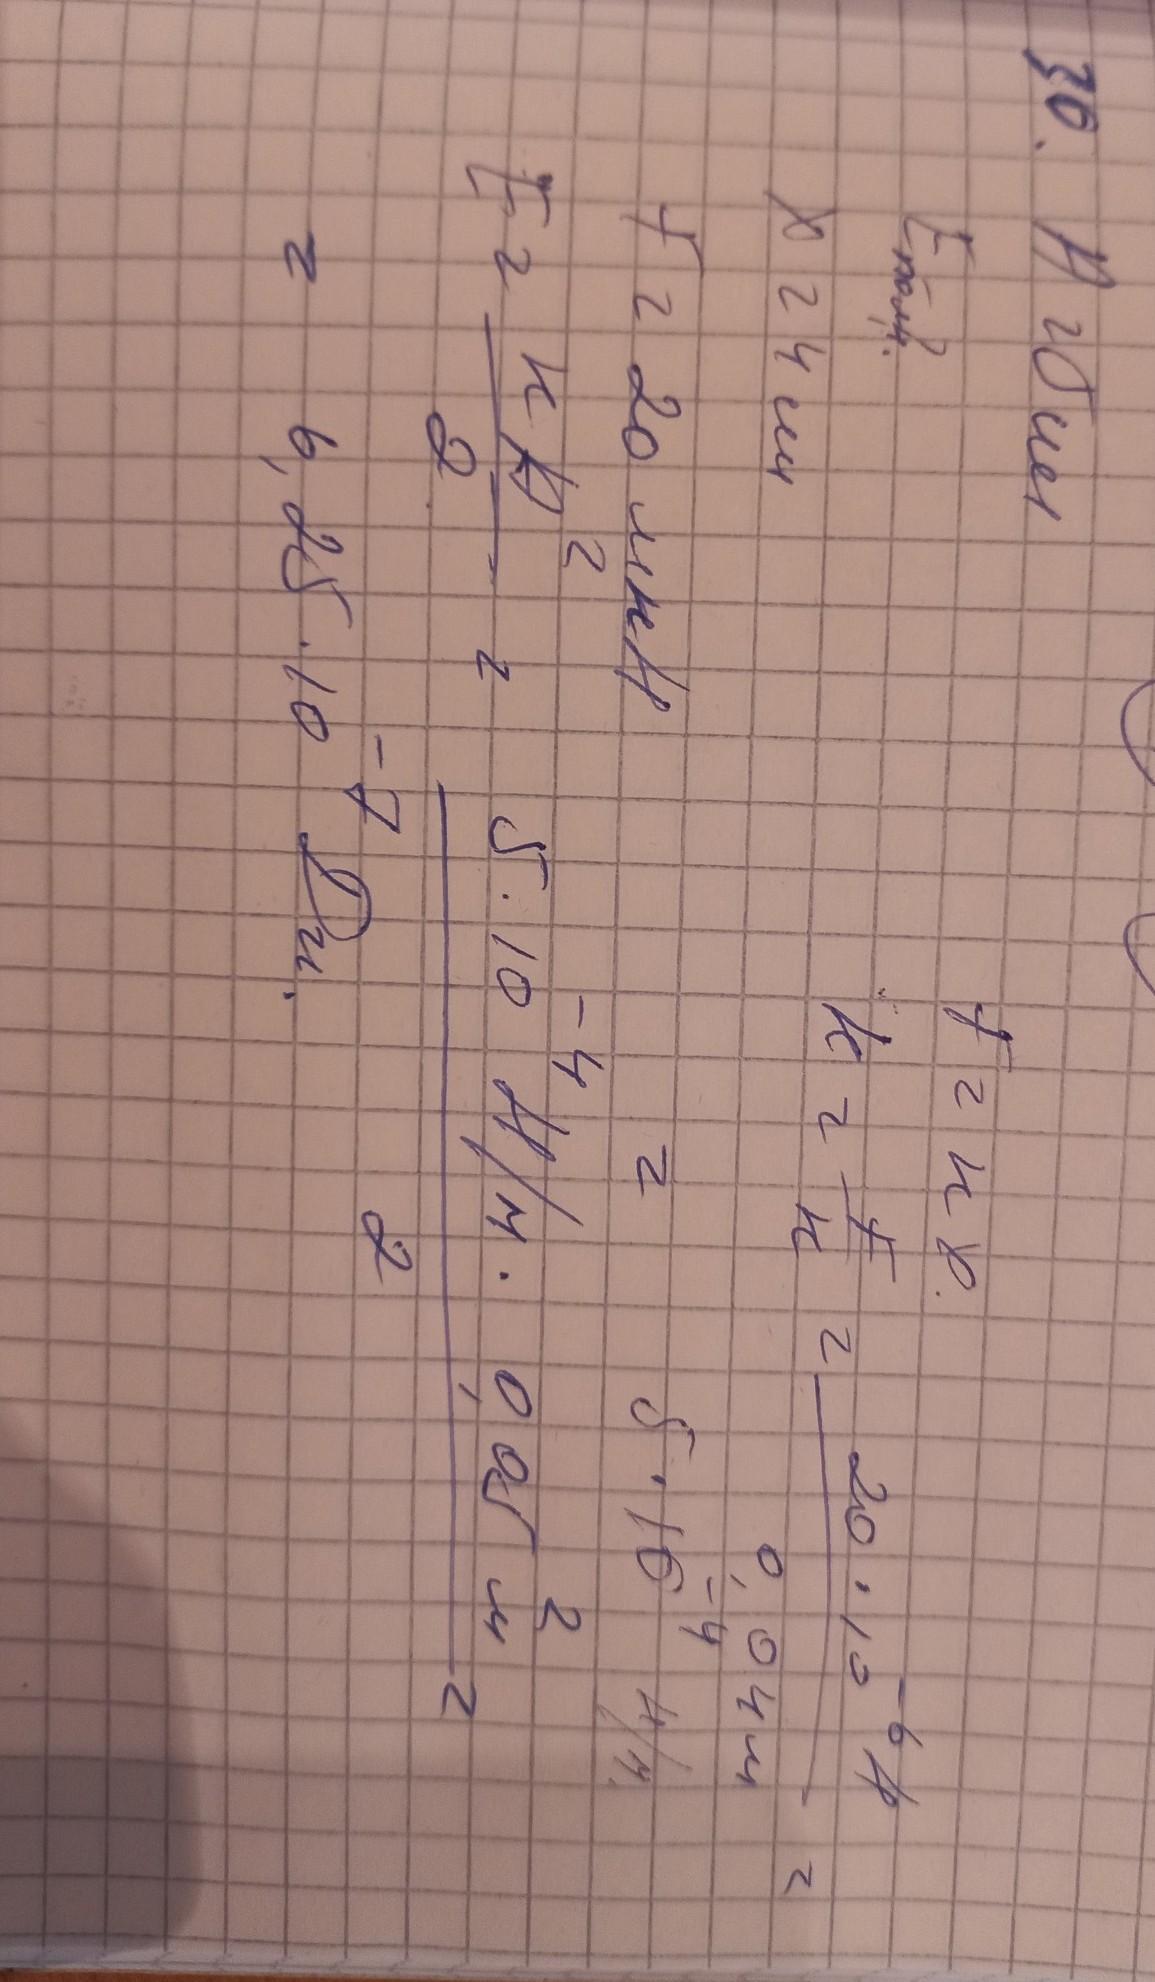 36. A = 5 см
E полн. ?
X = 4 см
F = 20 мкН
F = kx.
k = F/x = 20 · 10⁻⁶ Н / 0,04 м =
= 5 · 10⁻⁴ Н/м.
E = kA²/2 = 5 · 10⁻⁴ Н/м · 0,05² м / 2 =
= 6,25 · 10⁻⁷ Дж.